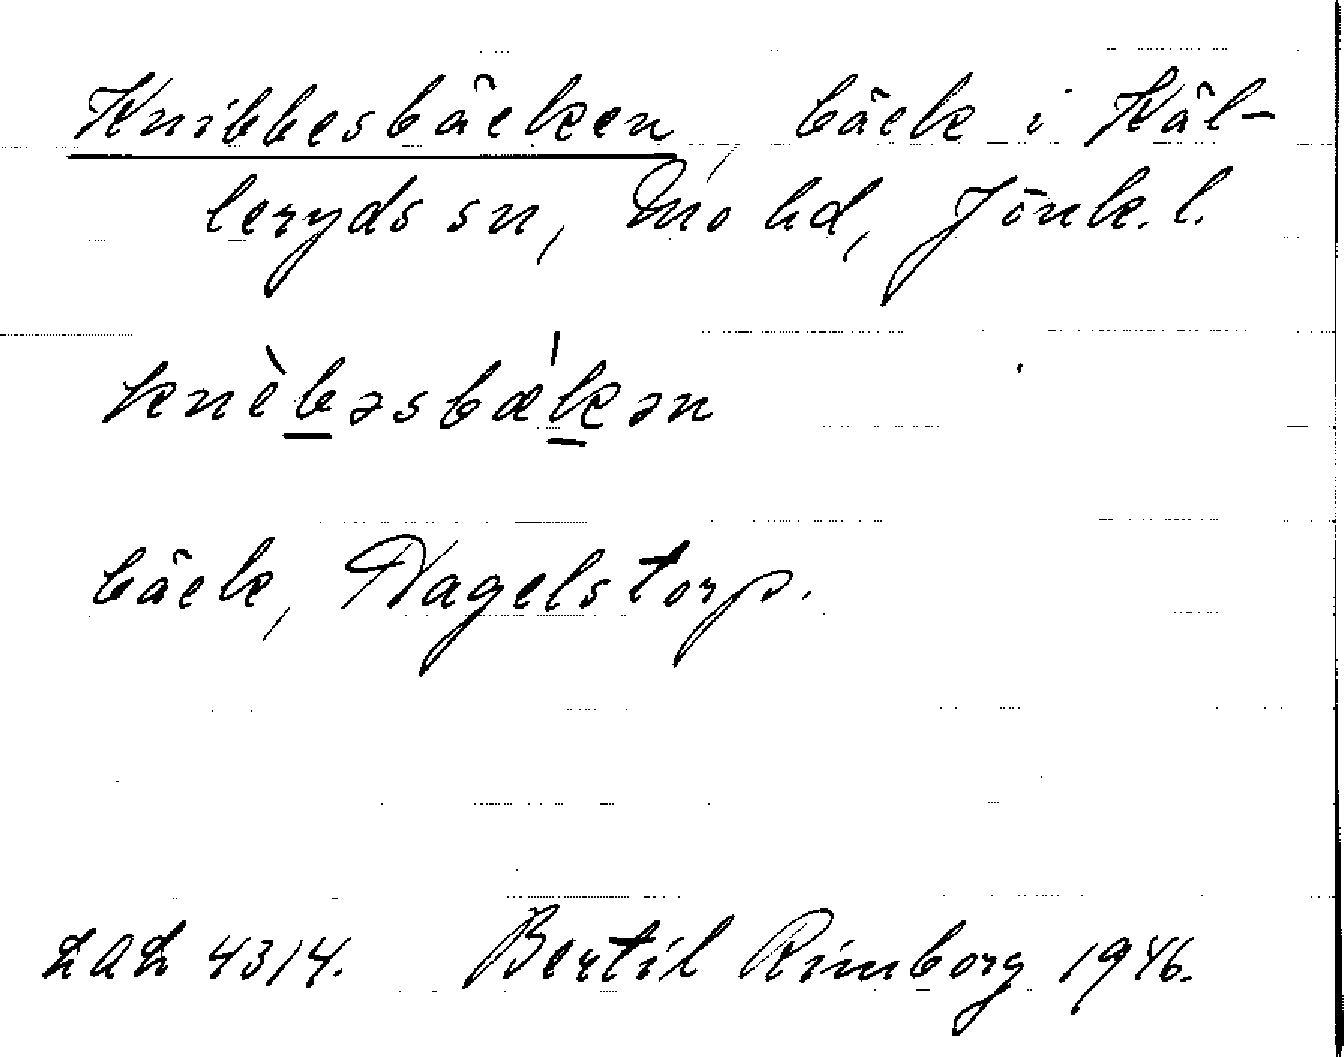 Knibbesbäcken, bäck i Käl-
leryds sn, Mo hd, Jönk.l.
knèb̲əsbæˈk̲ən
bäck, Nagelstorp.
LAL 4314. Bertil Rimborg 1946.